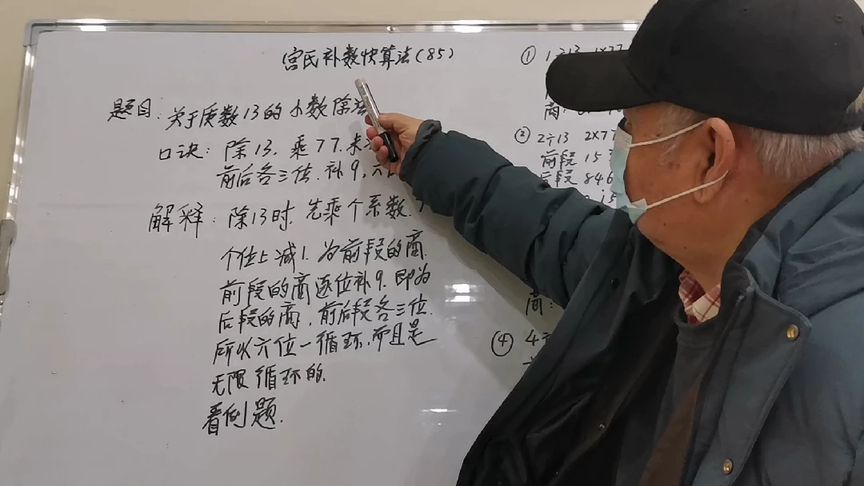 宫氏补数快算法(85)
题目：关于质数13的小数除法
口诀：除13.乘77.末
前后各三位.补9.六
解释：除13时.先乘个系数.
个位上减1.为前段的商.
前段的商逐位补9.即为
后段的商.前后段各三位.
所以六位一循环.而且是
无限循环的.
看例题.
① 1÷13 1×77
商:
② 2÷13 2×77
前段 15
后段 846
商:
④ 4